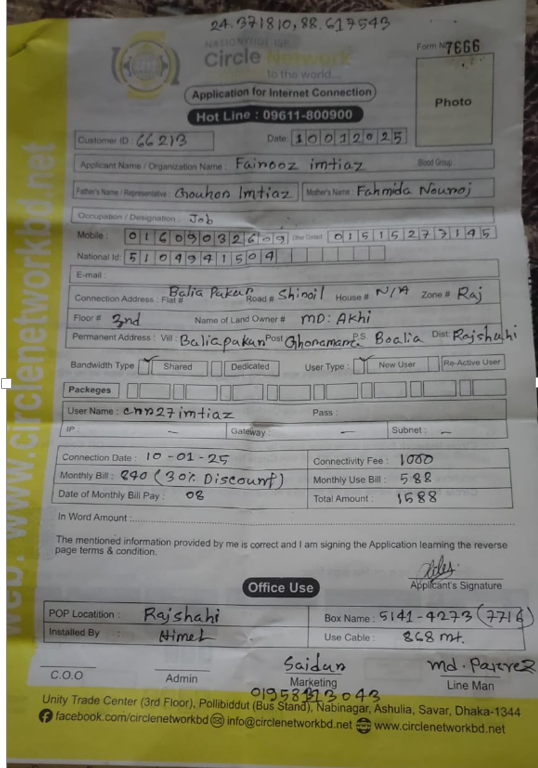 24.371810, 88.617543
NATIONWIDE ISP
Circle Network
to the world...
Form No 7666
Application for Internet Connection
Hot Line : 09611-800900
Photo
Customer ID : 66213 Date: 10012025
Applicant Name / Organization Name : Fairooz imtiaz Blood Group
Father's Name / Representative : Gouhon Imtiaz Mother's Name : Fahmida Nouroj
Occupation / Designation : Job
Mobile : 01609032609 01515277145
National Id: 5104941504
E-mail :
Connection Address : Flat # Balia Pukur Road # Shiroil House # N/A Zone # Raj
Floor # 2nd Name of Land Owner # MD: Akhi
Permanent Address : Vill : Baliapukur Post Ghoramara P.S Boalia Dist: Rajshahi
Bandwidth Type Shared Dedicated User Type : New User Re-Active User
Packeges
User Name : cnn27imtiaz Pass :
IP : – Gateway : – Subnet : –
Connection Date : 10-01-25 Connectivity Fee : 1000
Monthly Bill : 840 (30% Discount) Monthly Use Bill : 588
Date of Monthly Bill Pay : 08 Total Amount : 1588
In Word Amount :
The mentioned information provided by me is correct and I am signing the Application learning the reverse
page terms & condition.
Applicant's Signature
Office Use
POP Locatition : Rajshahi Box Name : 5141-4273 (7716)
Installed By : Himel Use Cable : 868 mt.
Saidur md. Parvez
C.O.O Admin Marketing Line Man
01958313043
Unity Trade Center (3rd Floor), Pollibiddut (Bus Stand), Nabinagar, Ashulia, Savar, Dhaka-1344
facebook.com/circlenetworkbd info@circlenetworkbd.net www.circlenetworkbd.net
web: www.circlenetworkbd.net